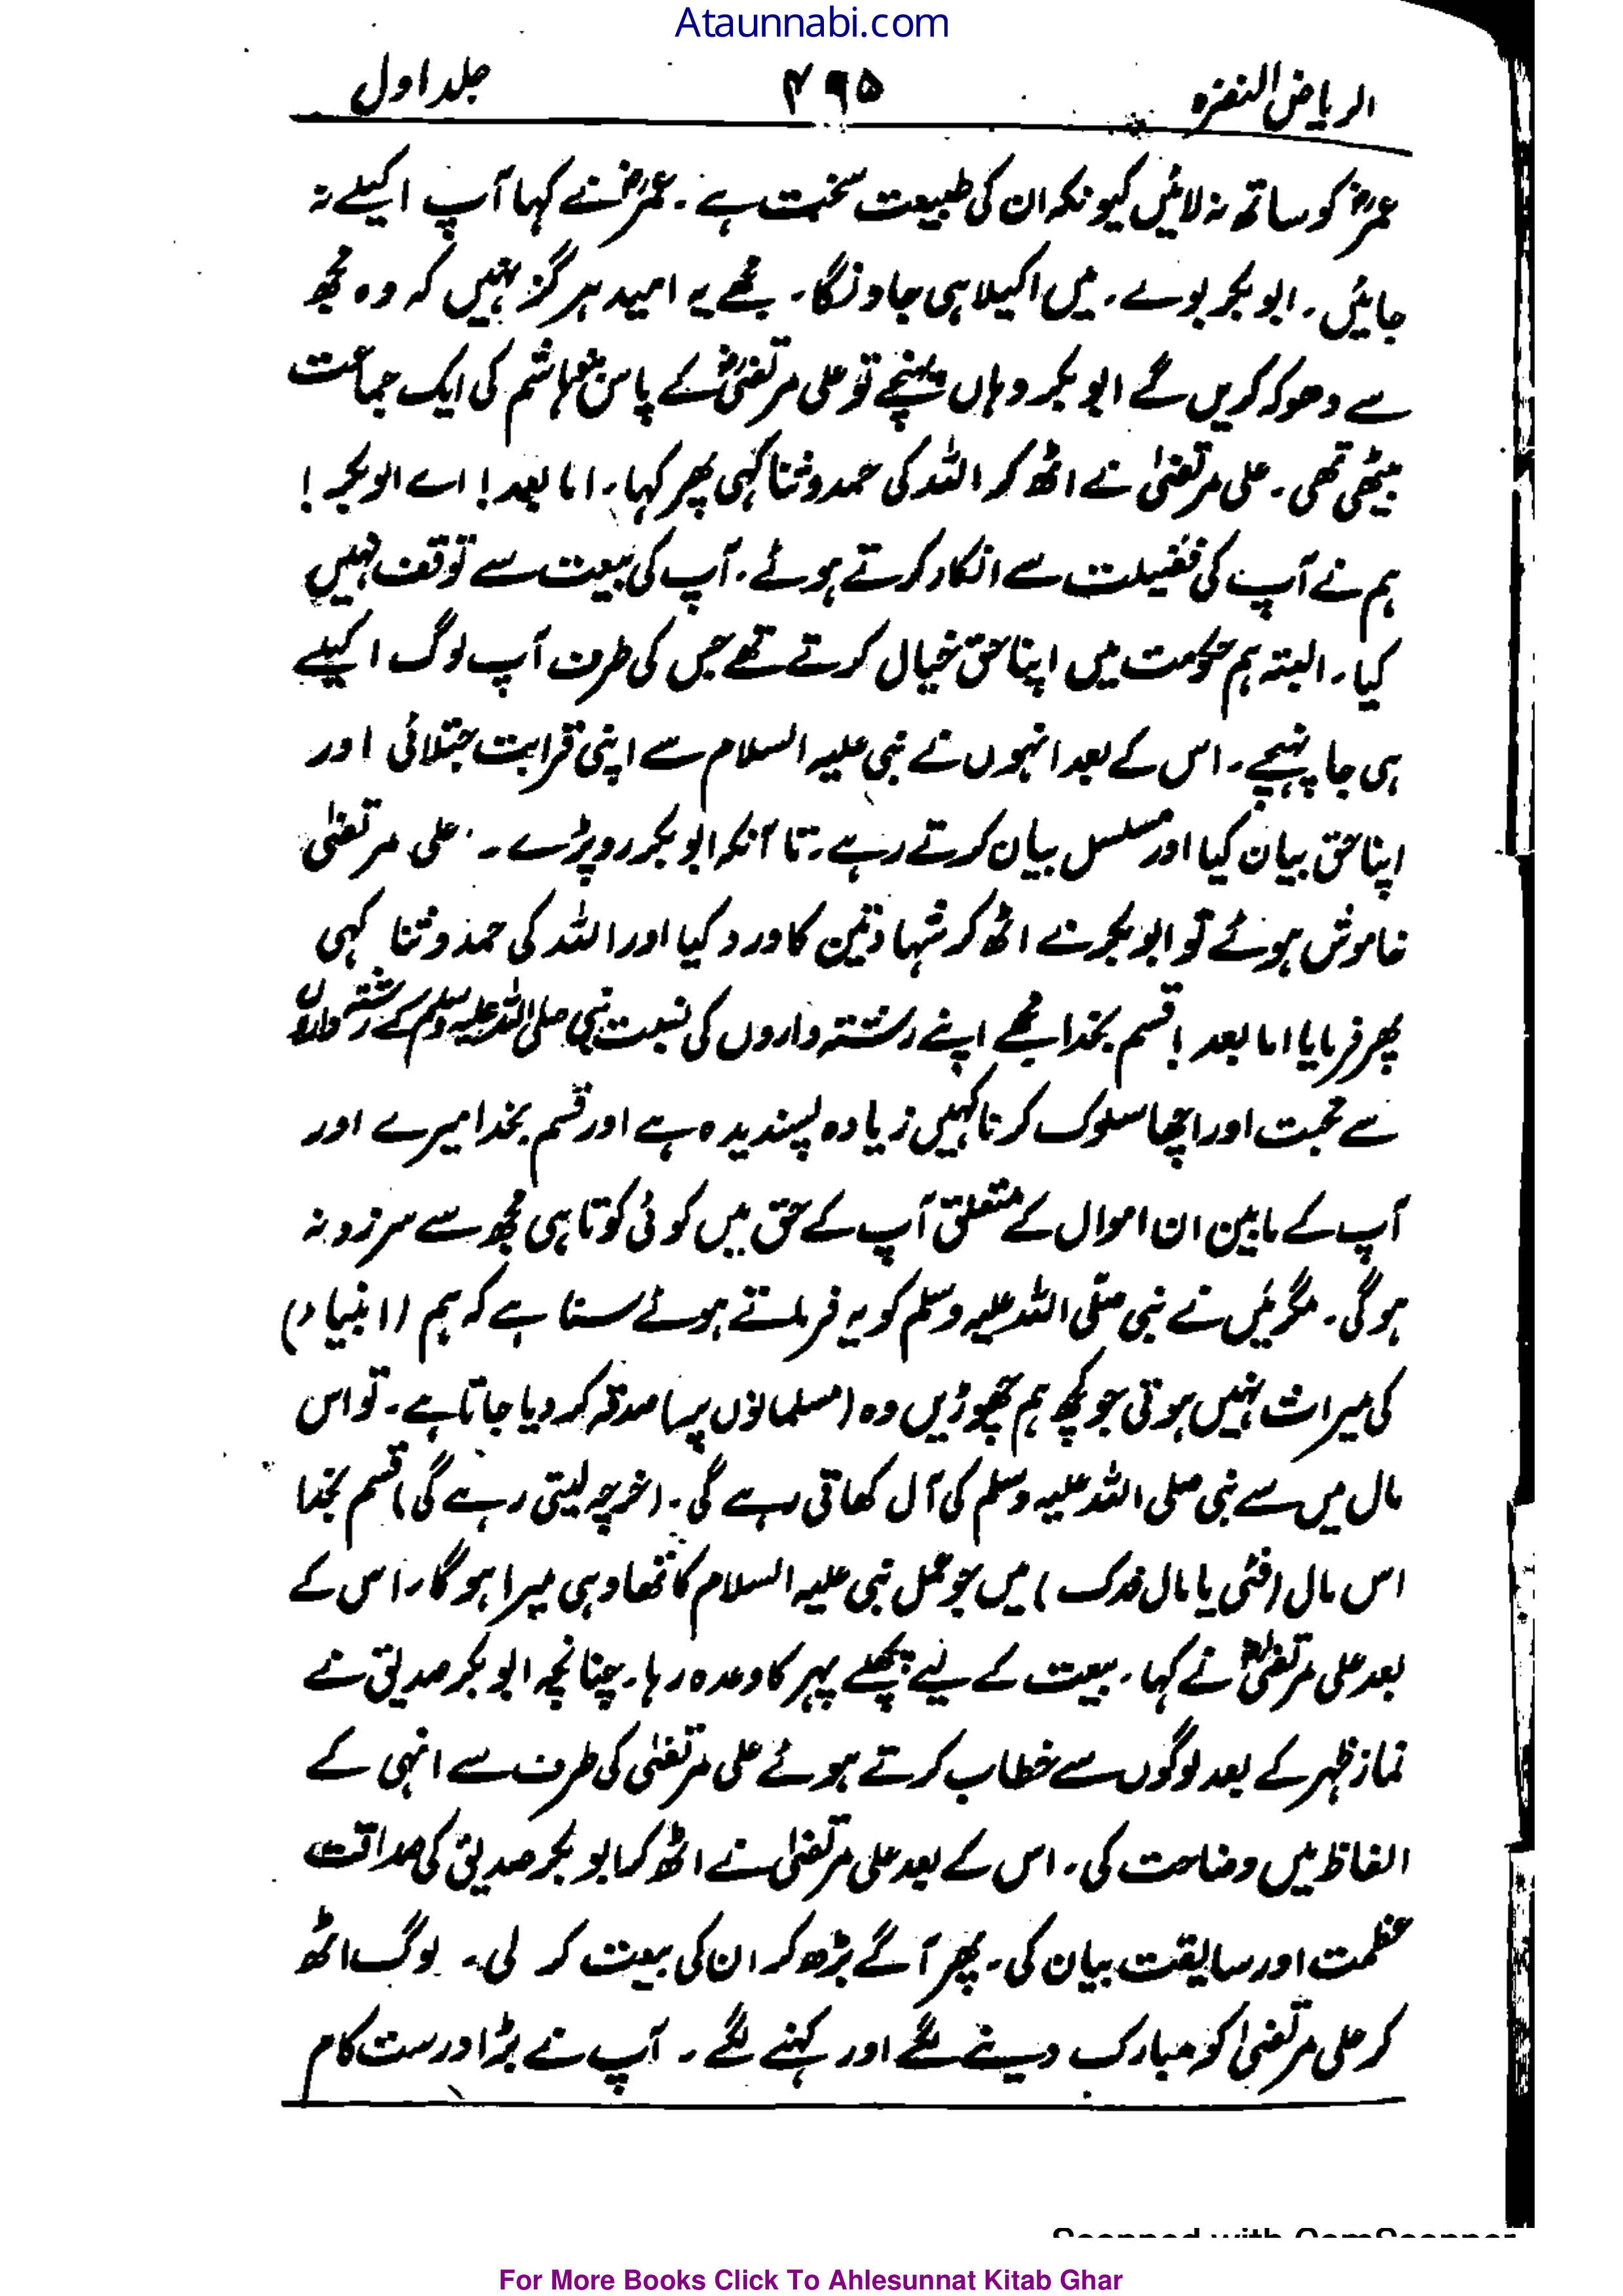 Ataunnabi.com
الریاض النضرہ ۴۹۵ جلد اول
عمرؓ کو ساتھ نہ لائیں کیونکہ ان کی طبیعت سخت ہے۔ عمرؓ نے کہا آپ اکیلے نہ
جائیں۔ ابوبکر بولے۔ میں اکیلا ہی جاونگا۔ مجھے یہ امید ہرگز نہیں کہ وہ مجھ
سے دھوکہ کریں گے ابوبکر وہاں پہنچے تو علی مرتضیٰؓ کے پاس بنو ہاشم کی ایک جماعت
بیٹھی تھی۔ علی مرتضیٰ نے اٹھ کر اللہ کی حمد و ثنا کہی پھر کہا۔ اما بعد! اے ابوبکر!
ہم نے آپ کی فضیلت سے انکار کرتے ہوئے۔ آپ کی بیعت سے توقف نہیں
کیا۔ البتہ ہم حکومت میں اپنا حق خیال کرتے تھے جس کی طرف آپ لوگ اکیلے
ہی جا پہنچے۔ اس کے بعد انہوں نے نبی علیہ السلام سے اپنی قرابت جتلائی اور
اپنا حق بیان کیا اور مسلسل بیان کرتے رہے۔ تا آنکہ ابوبکر رو پڑے۔ علی مرتضیٰ
خاموش ہوئے تو ابوبکر نے اٹھ کر شہادتین کا ورد کیا اور اللہ کی حمد و ثنا کہی
پھر فرمایا اما بعد! قسم بخدا مجھے اپنے رشتہ داروں کی نسبت نبی صلی اللہ علیہ وسلم کے رشتہ داروں
سے محبت اور اچھا سلوک کرنا کہیں زیادہ پسندیدہ ہے اور قسم بخدا میرے اور
آپ کے مابین ان اموال کے متعلق آپ کے حق میں کوئی کوتاہی مجھ سے سرزد نہ
ہوگی۔ مگر میں نے نبی صلی اللہ علیہ وسلم کو یہ فرماتے ہوئے سنا ہے کہ ہم (انبیاء)
کی میراث نہیں ہوتی جو کچھ ہم چھوڑیں وہ (مسلمانوں پر) صدقہ کر دیا جاتا ہے۔ تو اس
مال میں سے نبی صلی اللہ علیہ وسلم کی آل کھاتی رہے گی۔ (خرچہ لیتی رہے گی) قسم بخدا
اس مال (فئی یا مال فدک) میں جو عمل نبی علیہ السلام کا تھا وہی میرا ہوگا۔ اس کے
بعد علی مرتضیٰؓ نے کہا۔ بیعت کے لیے پچھلے پہر کا وعدہ رہا۔ چنانچہ ابوبکر صدیق نے
نماز ظہر کے بعد لوگوں سے خطاب کرتے ہوئے علی مرتضیٰ کی طرف سے انہی کے
الفاظ میں وضاحت کی۔ اس کے بعد علی مرتضیٰ نے اٹھ کر ابوبکر صدیق کی صداقت
عظمت اور سابقیت بیان کی۔ پھر آگے بڑھ کر ان کی بیعت کر لی۔ لوگ اٹھ
کر علی مرتضیٰ کو مبارک دینے لگے اور کہنے لگے۔ آپ نے بڑا درست کام
Scanned with CamScanner
For More Books Click To Ahlesunnat Kitab Ghar